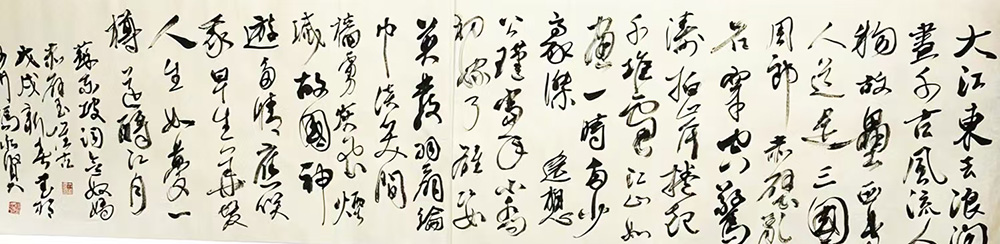 大江東去浪淘
盡千古風流人
物故壘西邊
人道是三國
周郎赤壁亂
石穿空驚
濤拍岸捲起
千堆雪江山如
畫一時多少
豪傑遙想
公瑾當年小喬
初嫁了雄姿
英發羽扇綸
巾談笑間
檣櫓灰飛煙
滅故國神
遊多情應笑
我早生華髮
人生如夢一
樽還酹江月
蘇東坡詞念奴嬌
赤壁懷古
戊戌新春書於